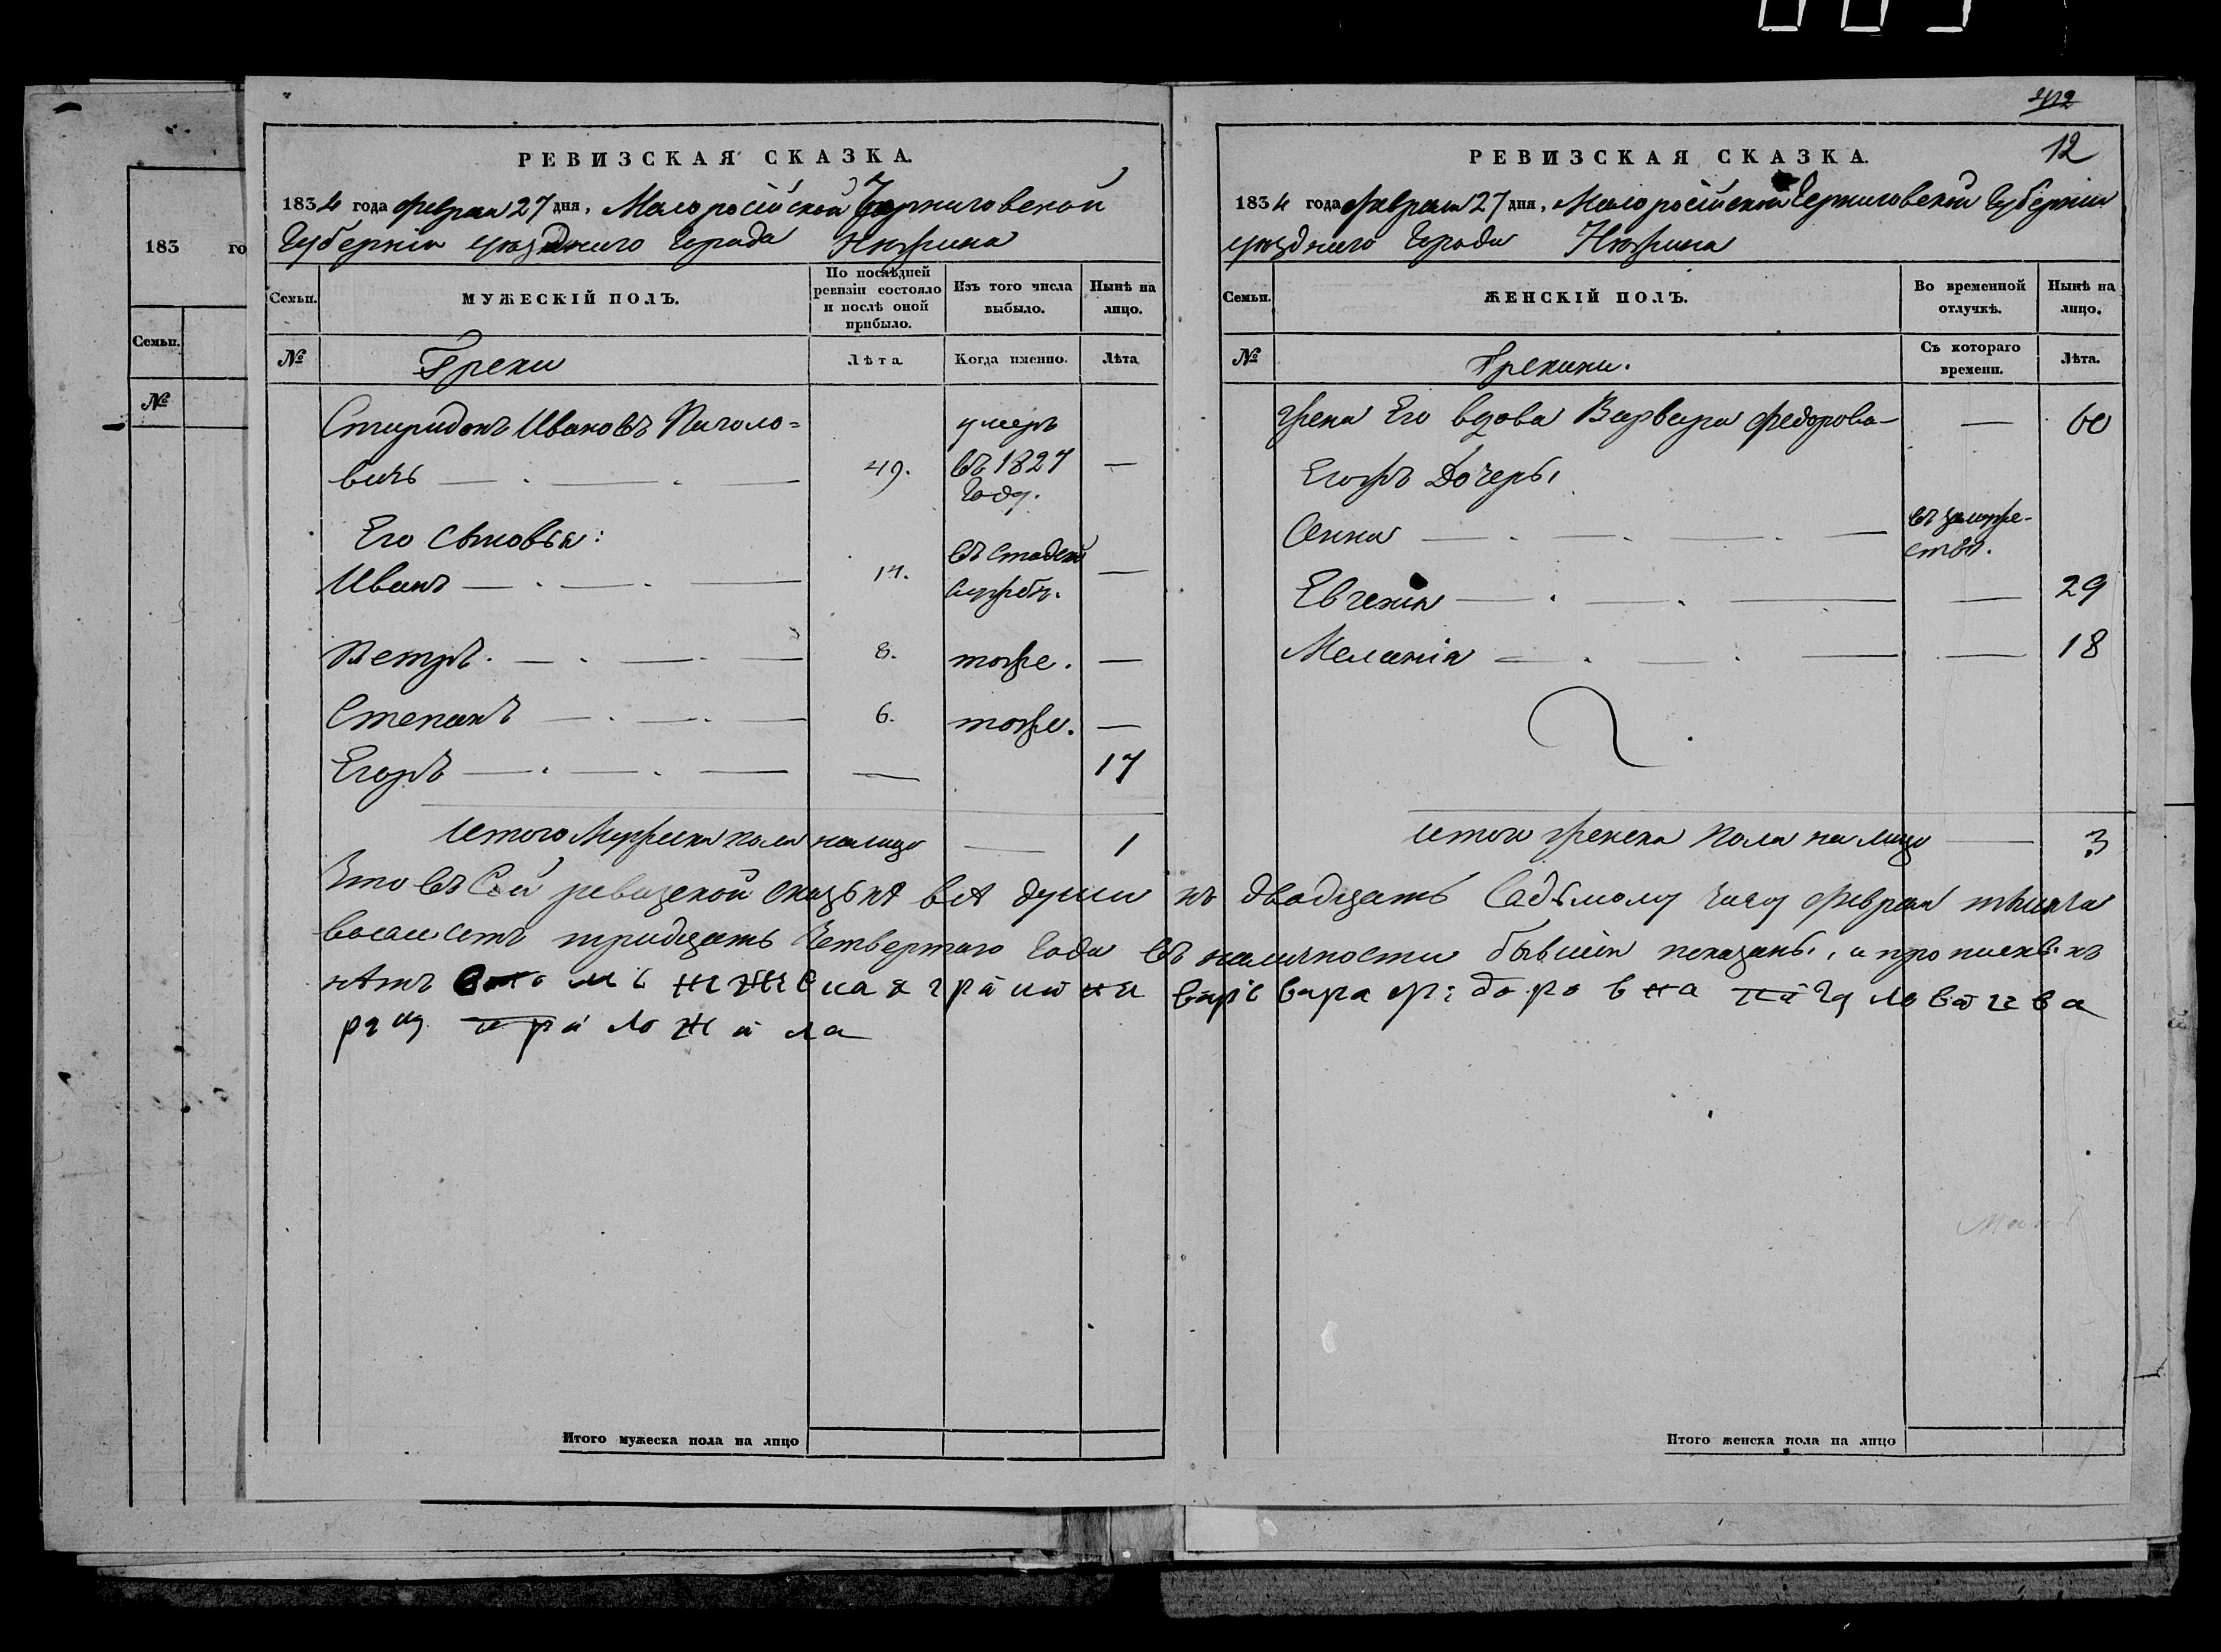 183 го
Семьи.
№
РЕВИЗСКАЯ СКАЗКА.
1834 года февраля 27 дня, Малоросійской Черниговской
Губерніи уѣзднаго Города Нѣжина
Семьи.
МУЖЕСКІЙ ПОЛЪ.
По послѣдней ревизіи состояло и послѣ оной прибыло.
Изъ того числа выбыло.
Нынѣ на лицо.
№
Греки
Лѣта
Когда именно.
Лѣта
Спиридонъ Ивановъ Пичоло=
вичь 49. умеръ въ 1827 Году. —
Его сыновья:
Иванъ 14. въ службѣ. —
Петръ. 8. тоже. —
Степанъ 6. тоже. —
Егоръ — 17
Итого Мужеска пола налицо — 1
412
12
РЕВИЗСКАЯ СКАЗКА.
1834 года февраля 27 дня, Малоросійской Черниговской Губерніи
уѣзднаго Города Нѣжина
Семьи.
ЖЕНСКІЙ ПОЛЪ.
Во временной отлучкѣ.
Нынѣ на лицо.
№
Грекини.
Съ котораго времени.
Лѣта.
Жена Его вдова Варвара Федорова — 60
Егожъ Дочеры
Анна въ замуже-
ствѣ.
Евгенія — 29
Меланія — 18
итого женска пола на лицо — 3
Что въ Сей ревизской сказькѣ всѣ души къ двадцать Седьмому числу февраля мѣсяца
восемсотъ тридцать Четвертаго Года въ наличности бывшія показаны, и прописныхъ
нѣтъ нежинская варвара федоровна
руку приложила
Итого мужеска пола на лицо
Итого женска пола на лицо